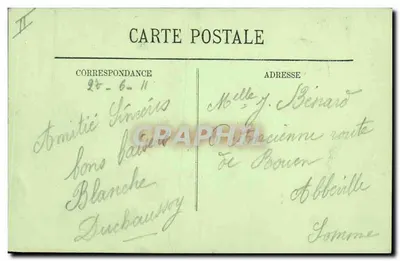 II
CARTE POSTALE
CORRESPONDANCE
27-6-11
Amitié Sincères
bons baisers
Blanche
Duchaussoy
ADRESSE
Melle J. Bénard
ancienne route
de Rouen
Abbeville
Somme